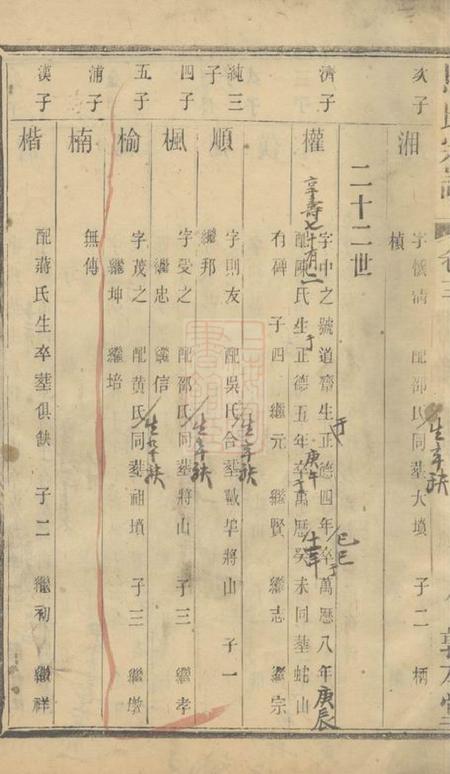 次子
湘 字懷清 配邵氏同塟大墳 子二 柄
生卒缺
楨
二十二世
濟子
權 字中之號道齋生正德四年卒萬曆八年庚辰
于
己巳
享壽七十有二
配陳氏生正德五年卒萬曆癸未同塟蛇山
于
庚午
十一年
有碑 子四 繼元 繼賢 繼志 繼宗
純三子
順 字則友 配吳氏合塟戴埠蔣山 子一
生卒缺
繼邦
四子
楓 字受之 配邵氏同塟蔣山 子三 繼孝
生卒缺
繼忠 繼信
五子
榆 字茂之 配黄氏同塟祖墳 子三 繼墩
生卒缺
繼坤 繼培
浦子
楠 無傳
漢子
楷 配蔣氏生卒塟俱缺 子二 繼初 繼祥